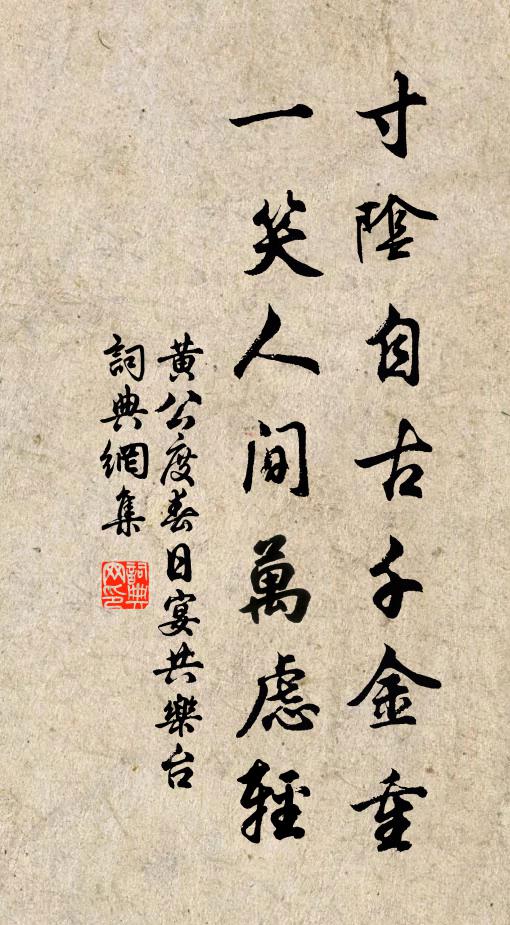 寸陰自古千金重
一笑人間萬慮輕
黄公度春日宴共樂台
詞典網集
詞典
网印